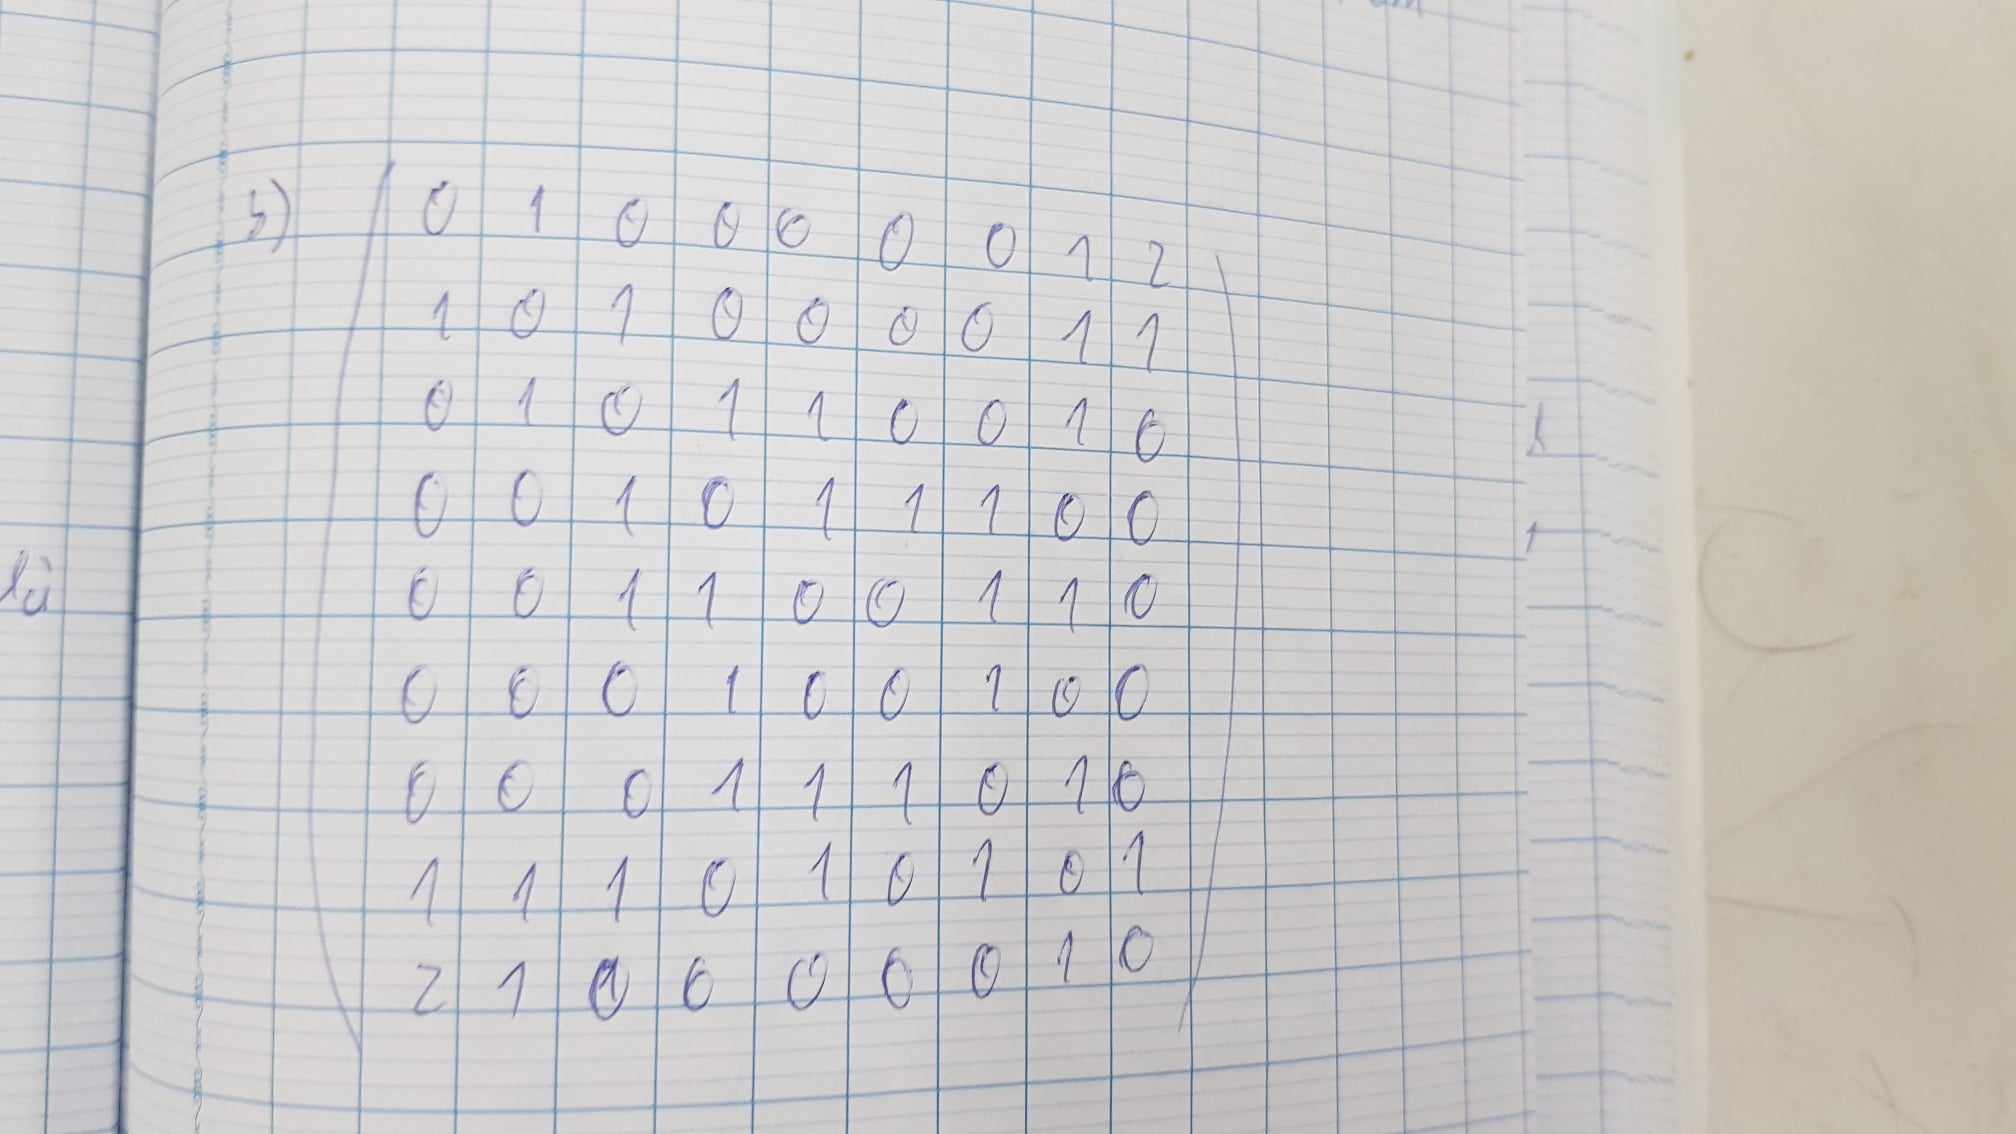 là
3) 0 1 0 0 0 0 0 1 2
1 0 1 0 0 0 0 1 1
0 1 0 1 1 0 0 1 0
0 0 1 0 1 1 1 0 0
0 0 1 1 0 0 1 1 0
0 0 0 1 0 0 1 0 0
0 0 0 1 1 1 0 1 0
1 1 1 0 1 0 1 0 1
2 1 0 0 0 0 0 1 0